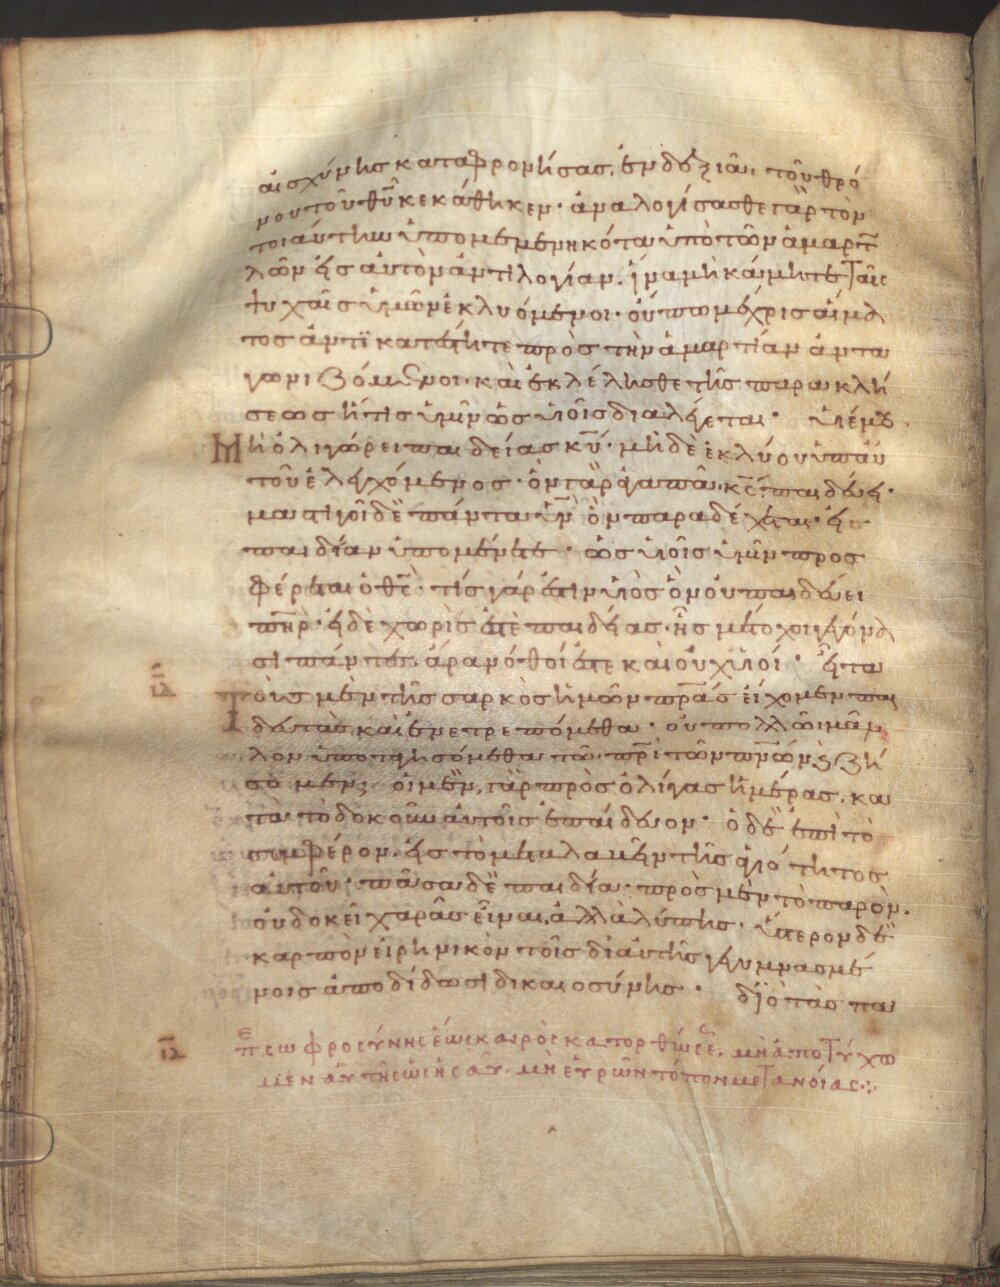 αἰσχύνης καταφρονήσας, ἐν δεξιᾶ, τοῦ θρό
νου τοῦ θῦ κεκάθηκεν· ἀναλογίσασθε γὰρ τὸν
τοιαύτην ὑπομεμενηκότα ὑπὸ τῶν ἁμαρτ
λῶν εἰς αὐτὸν ἀντιλογίαν. ἵνα μὴ κάμητε ταῖς
ψυχαῖς ὑμῶν ἐκλυόμενοι· οὔπω μέχρις αἵμα
τος ἀντικατέστητε πρὸς τὴν ἁμαρτίαν ἀντα
γωνιζόμενοι· καὶ ἐκλέλησθε τῆς παρακλή
σεως ἥτις ὑμῖν ὡς υἱοῖς διαλέγεται· υἱέ μου
Μὴ ὀλιγώρει παιδείας κυ· μὴ δὲ ἐκλύου ὑπ αὐ
τοῦ ἐλεγχόμενος· ὃν γὰρ ἀγαπᾶ κς παιδεύει·
μαστιγοῖ δὲ πάντα υν ὃν παραδέχεται· εἰς
παιδίαν ὑπομένετε· ὡς υἱοῖς ὑμῖν προς
φέρεται ὁ θς· τίς γάρ ἐστιν υἱὸς ὃν οὐ παιδεύει
πηρ· εἰ δὲ χωρίς ἐστε παιδείας· ἧς μέτοχοι γεγόνα
σι πάντες, ἄρα νόθοί ἐστε καὶ οὐχ υἱοί· εἶτα
Τοὺς μὲν τῆς σαρκὸς ἡμῶν πρας εἴχομεν παι
δευτὰς καὶ ἐνετρεπόμεθα· οὐ πολλῶ μᾶλ
λον ὑποταγησόμεθα τῶ πρι τῶν πνων, ζή
σομεν; οἱ μὲν, γὰρ πρὸς ὀλίγας ἡμέρας, κα
τὰ τὸ δοκοῦν αὐτοῖς ἐπαίδευον· ὁ δὲ ἐπὶ τὸ
συμφέρον. εἰς τὸ μεταλαβεῖν τῆς ἁγιότητος
αὐτοῦ· πᾶσα δὲ παιδία· πρὸς μὲν τὸ παρὸν.
οὐ δοκεῖ χαρᾶς εἶναι, ἀλλὰ λύπης· ὕστερον δὲ
καρπὸν εἰρηνικὸν τοῖς δι αὐτῆς γεγυμνασμέ
νοις ἀποδίδωσι δικαιοσύνης· διὸ τὰς πα
ιδ πε σωφροσύνης ἕως καιρὸς κατορθώσεως, μὴ ἀποτύχω
μεν αὐτῆς ὡς ἡσαῦ· μὴ εὑρὼν τόπον μετανοίας·: